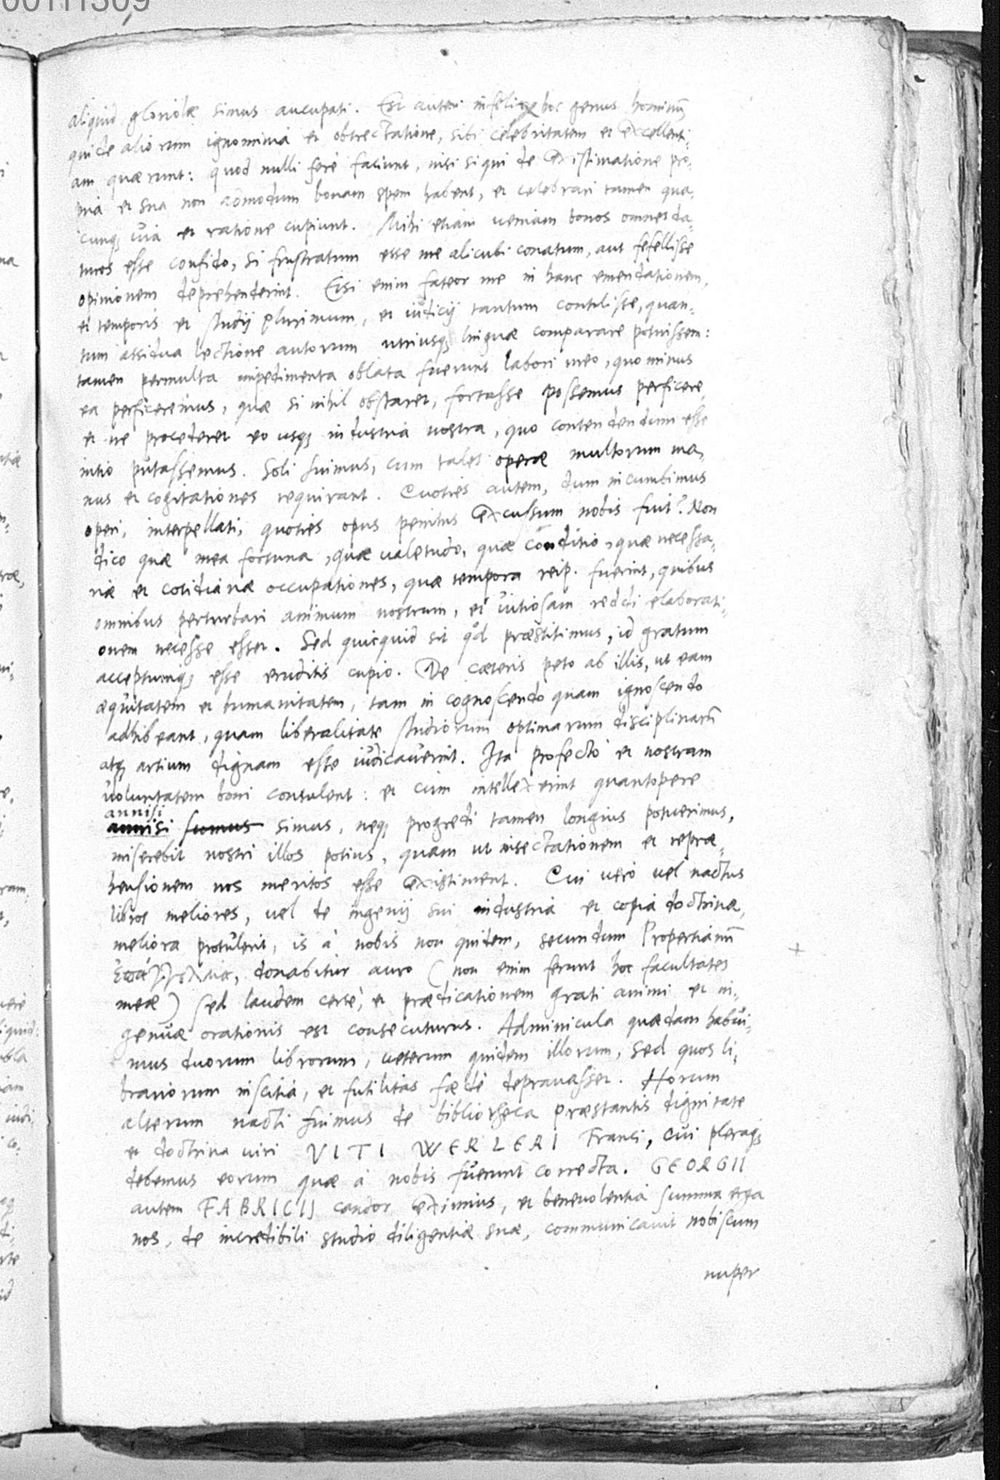 00111309
aliquid gloriolæ simus aucupati. Est autem infelix hoc genus hominū
qui de aliorum ignominia et obtrectatione, sibi celebritatem et excellenti-
am quærunt: quod nulli ferè faciunt, nisi si qui de existimatione pro-
pria et sua non admodum bonam spem habent, et celebrari tamen qua-
cunq; via et ratione cupiunt. Mihi etiam veniam bonos omnes da-
turos esse confido, si frustratum esse me alicubi conatum, aut fefellisse
opinionem deprehenderint. Etsi enim fateor me in hanc emendationem,
et temporis et studij plurimum, et iudicij tantum contulisse, quan-
tum assidua lectione autorum utriusq; linguæ comparare potuissem:
tamen permulta impedimenta oblata fuerunt labori meo, quo minus
ea perficeremus, quæ si nihil obstaret, fortasse possemus perficere,
et ne procederet eo usq; industria nostra, quo contendendum esse
initio putassemus. Soli fuimus, cum tales operæ multorum ma-
nus et cogitationes requirant. Quoties autem, dum incumbimus
operi, interpellati, quoties opus penitus excussum nobis fuit? Non
dico quæ mea fortuna, quæ valetudo, quæ conditio, quæ necessa-
riæ et cotidianæ occupationes, quæ tempora reip. fuerint, quibus
omnibus perturbari animum nostrum, et vitiosam reddi elaborati-
onem necesse esset. Sed quicquid sit qd præstitimus, id gratum
acceptumq; esse eruditis cupio. De cæteris peto ab illis, ut eam
æquitatem et humanitatem, tam in cognoscendo quam ignoscendo
adhibeant, quam liberalitate studiorum optimarum disciplinarū
atq; artium dignam esse iudicaverint. Ita profectò et nostram
voluntatem boni consulent: et cùm intellexerint quantopere
annisi
annisi sumus simus, neq; progredi tamen longius potuerimus,
miserebit nostri illos potius, quam ut insectationem et repræ-
hensionem nos meritos esse existiment. Cui verò vel nactus
libros meliores, vel de ingenij sui industria et copia doctrinæ,
meliora protulerit, is à nobis non quidem, secundum Propertianū
donabitur auro (non enim ferunt hoc facultates
meæ) sed laudem certè, et prædicationem grati animi et in-
genuæ orationis est consecuturus. Adminicula quædam habui-
mus duorum librorum, veterum quidem illorum, sed quos li-
brariorum inscitia, et futilitas fœdè depravasset. Horum
alterum nacti fuimus de bibliotheca præstantis dignitate
et doctrina viri VITI WERLERI Franci, cui pleraq;
debemus eorum quæ à nobis fuerunt correcta. GEORGII
autem FABRICIJ candor eximius, et benevolentia summa erga
nos, de incredibili studio diligentiæ suæ, communicavit nobiscum
nuper